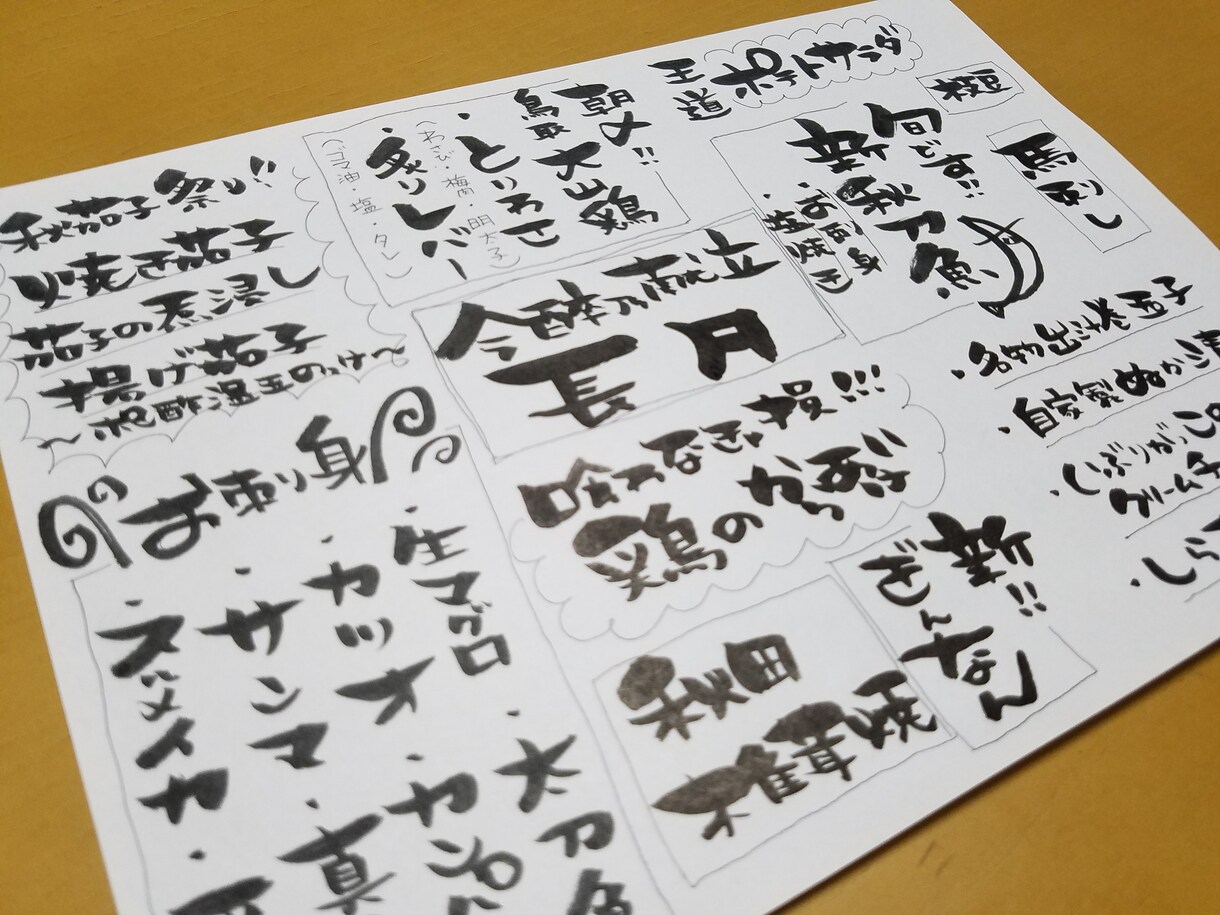 枝豆
馬刺し
王道
ポテトサラダ
旬です!!
新秋刀魚
・お刺身
・塩焼き
朝〆!!
鳥取大山鶏
・とりわさ
(わさび・梅肉・明太子)
・炙りレバー
(ゴマ油・塩・タレ)
秋茄子祭り!!
焼き茄子
茄子の煮浸し
揚げ茄子
酢温玉のっけ〜
・名物出汁巻玉子
・自家製ぬか
・いぶりがっ
クリームチ
・しら
長
なきゃ損!!!
鶏のから
新!!
ぎんなん
お刺身
・生マグロ
・カツオ
・サンマ
・スルメイカ
・太刀魚
・カンパ
・真